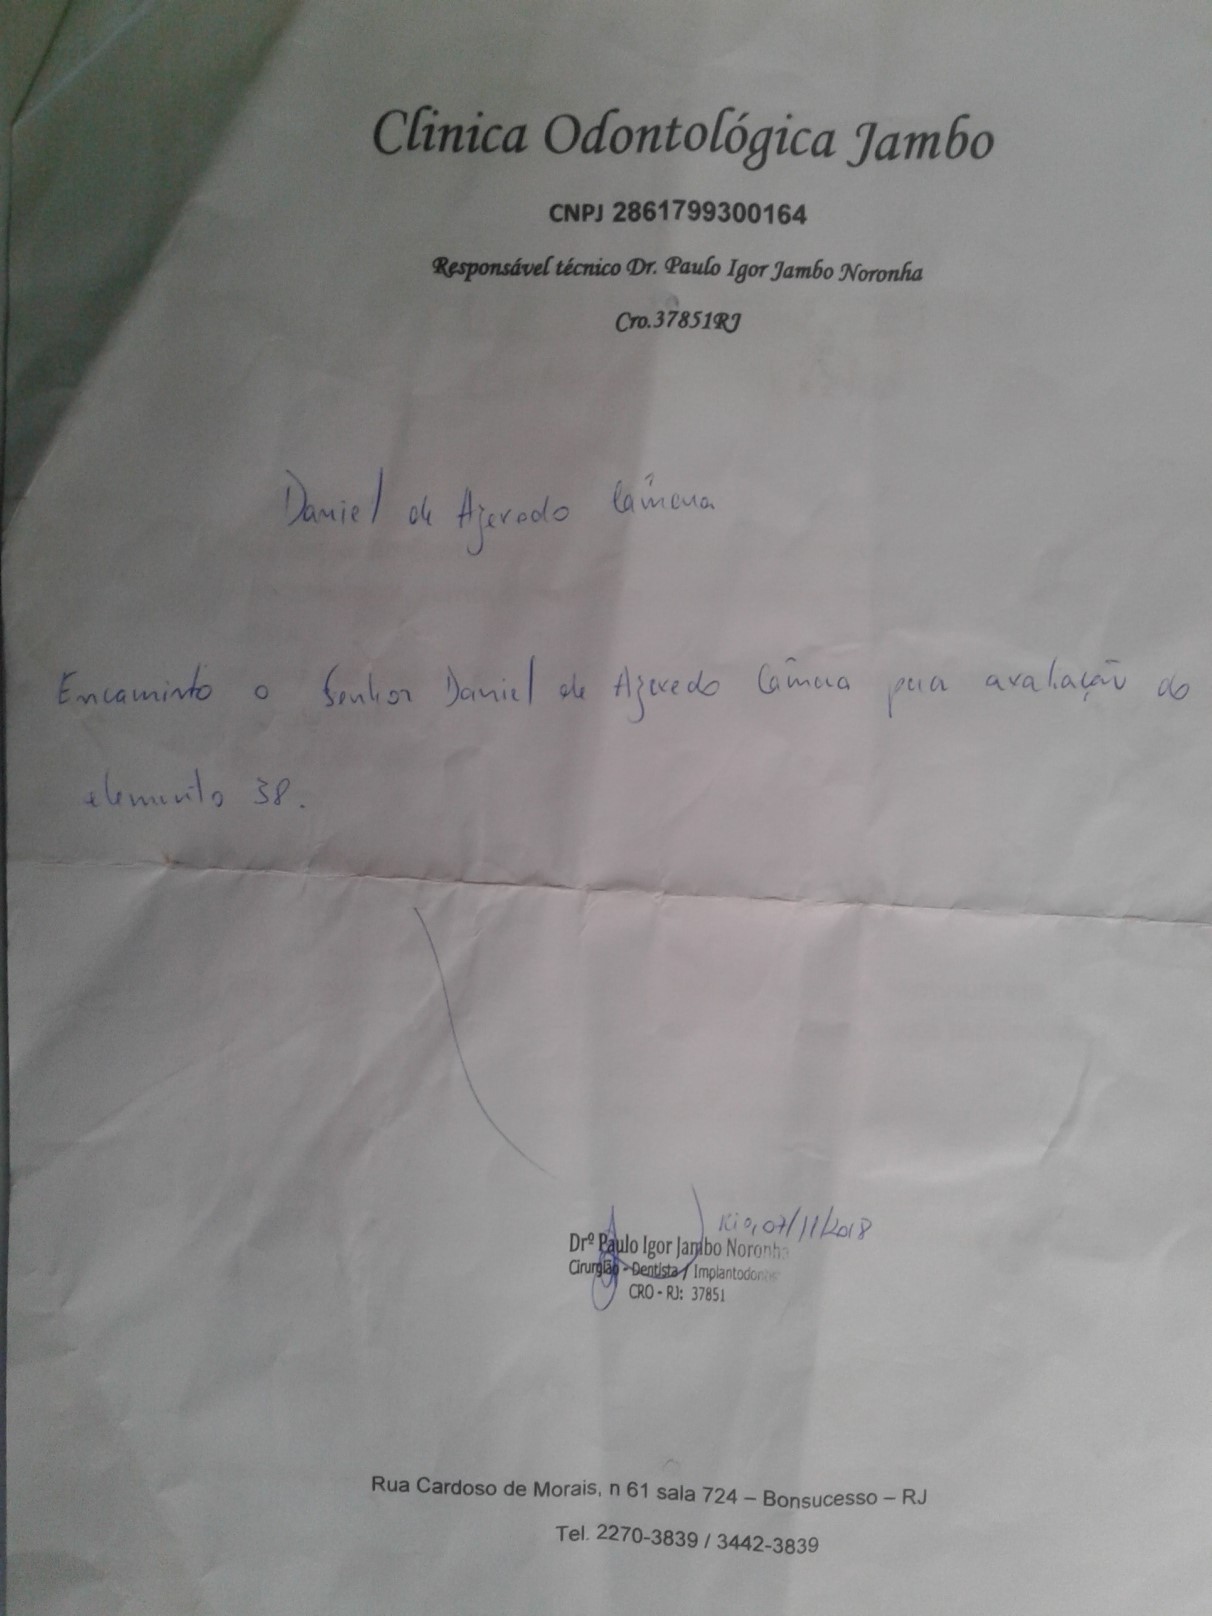 Clinica Odontológica Jambo
CNPJ 2861799300164
Responsável técnico Dr. Paulo Igor Jambo Noronha
Cro.37851RJ
Daniel de Azevedo Câmara
Encaminho o Senhor Daniel de Azevedo Câmara para avaliação do
elemento 38.
Rio, 07/11/2018
Drº Paulo Igor Jambo Noronha
Cirurgião - Dentista / Implantodontista
CRO - RJ: 37851
Rua Cardoso de Morais, n 61 sala 724 – Bonsucesso – RJ
Tel. 2270-3839 / 3442-3839